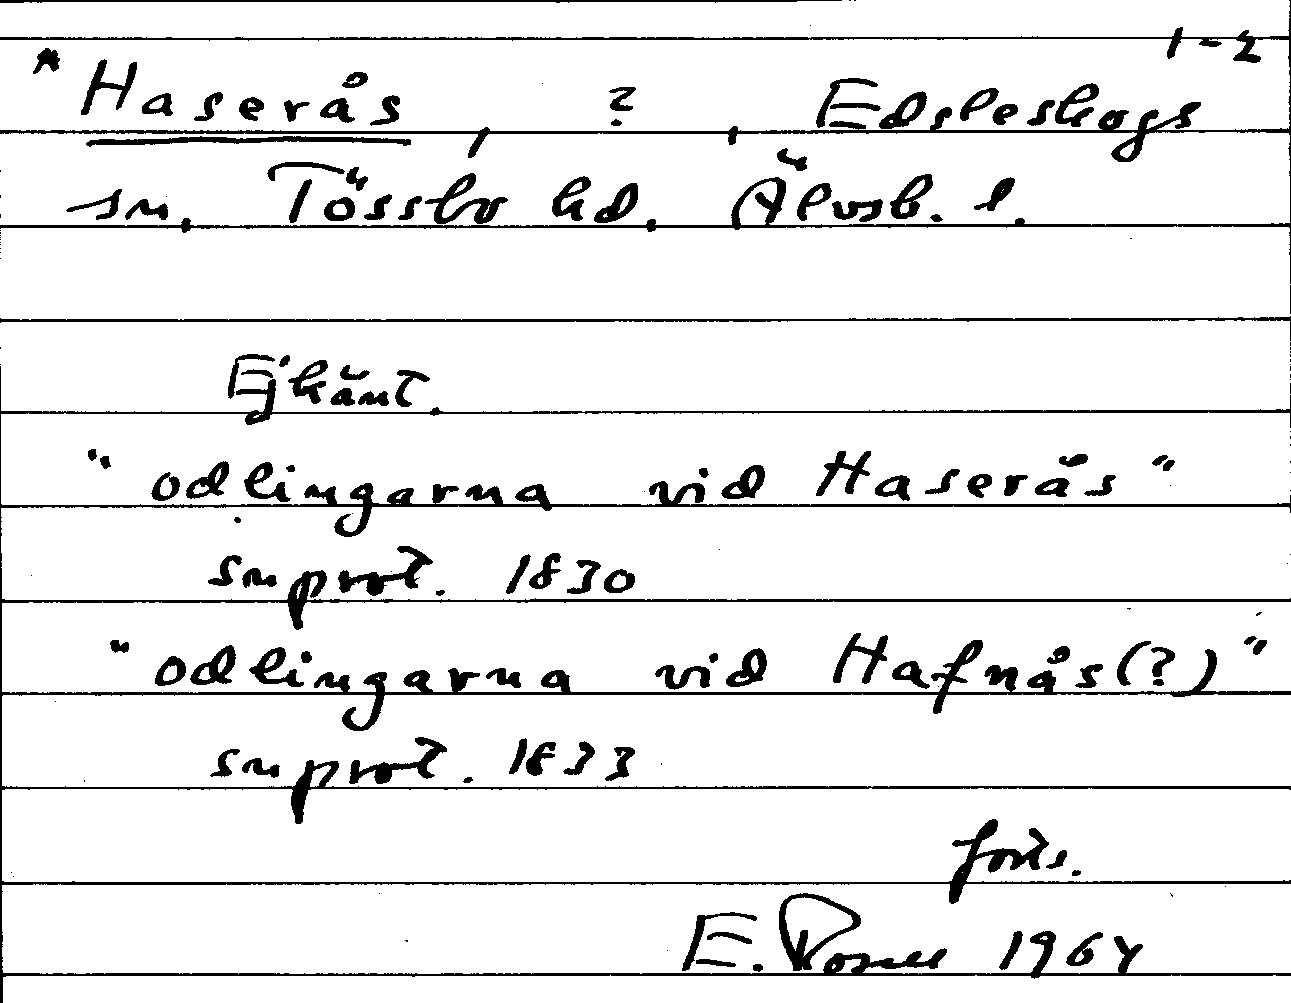 1-2
*Haserås, ?, Edsleskogs
sn, Tössbo hd, Älvsb. l.
Ej känt.
"odlingarna vid Haserås"
snprot. 1830
"odlingarna vid Hafnås(?)"
snprot. 1833
forts.
E. 1964